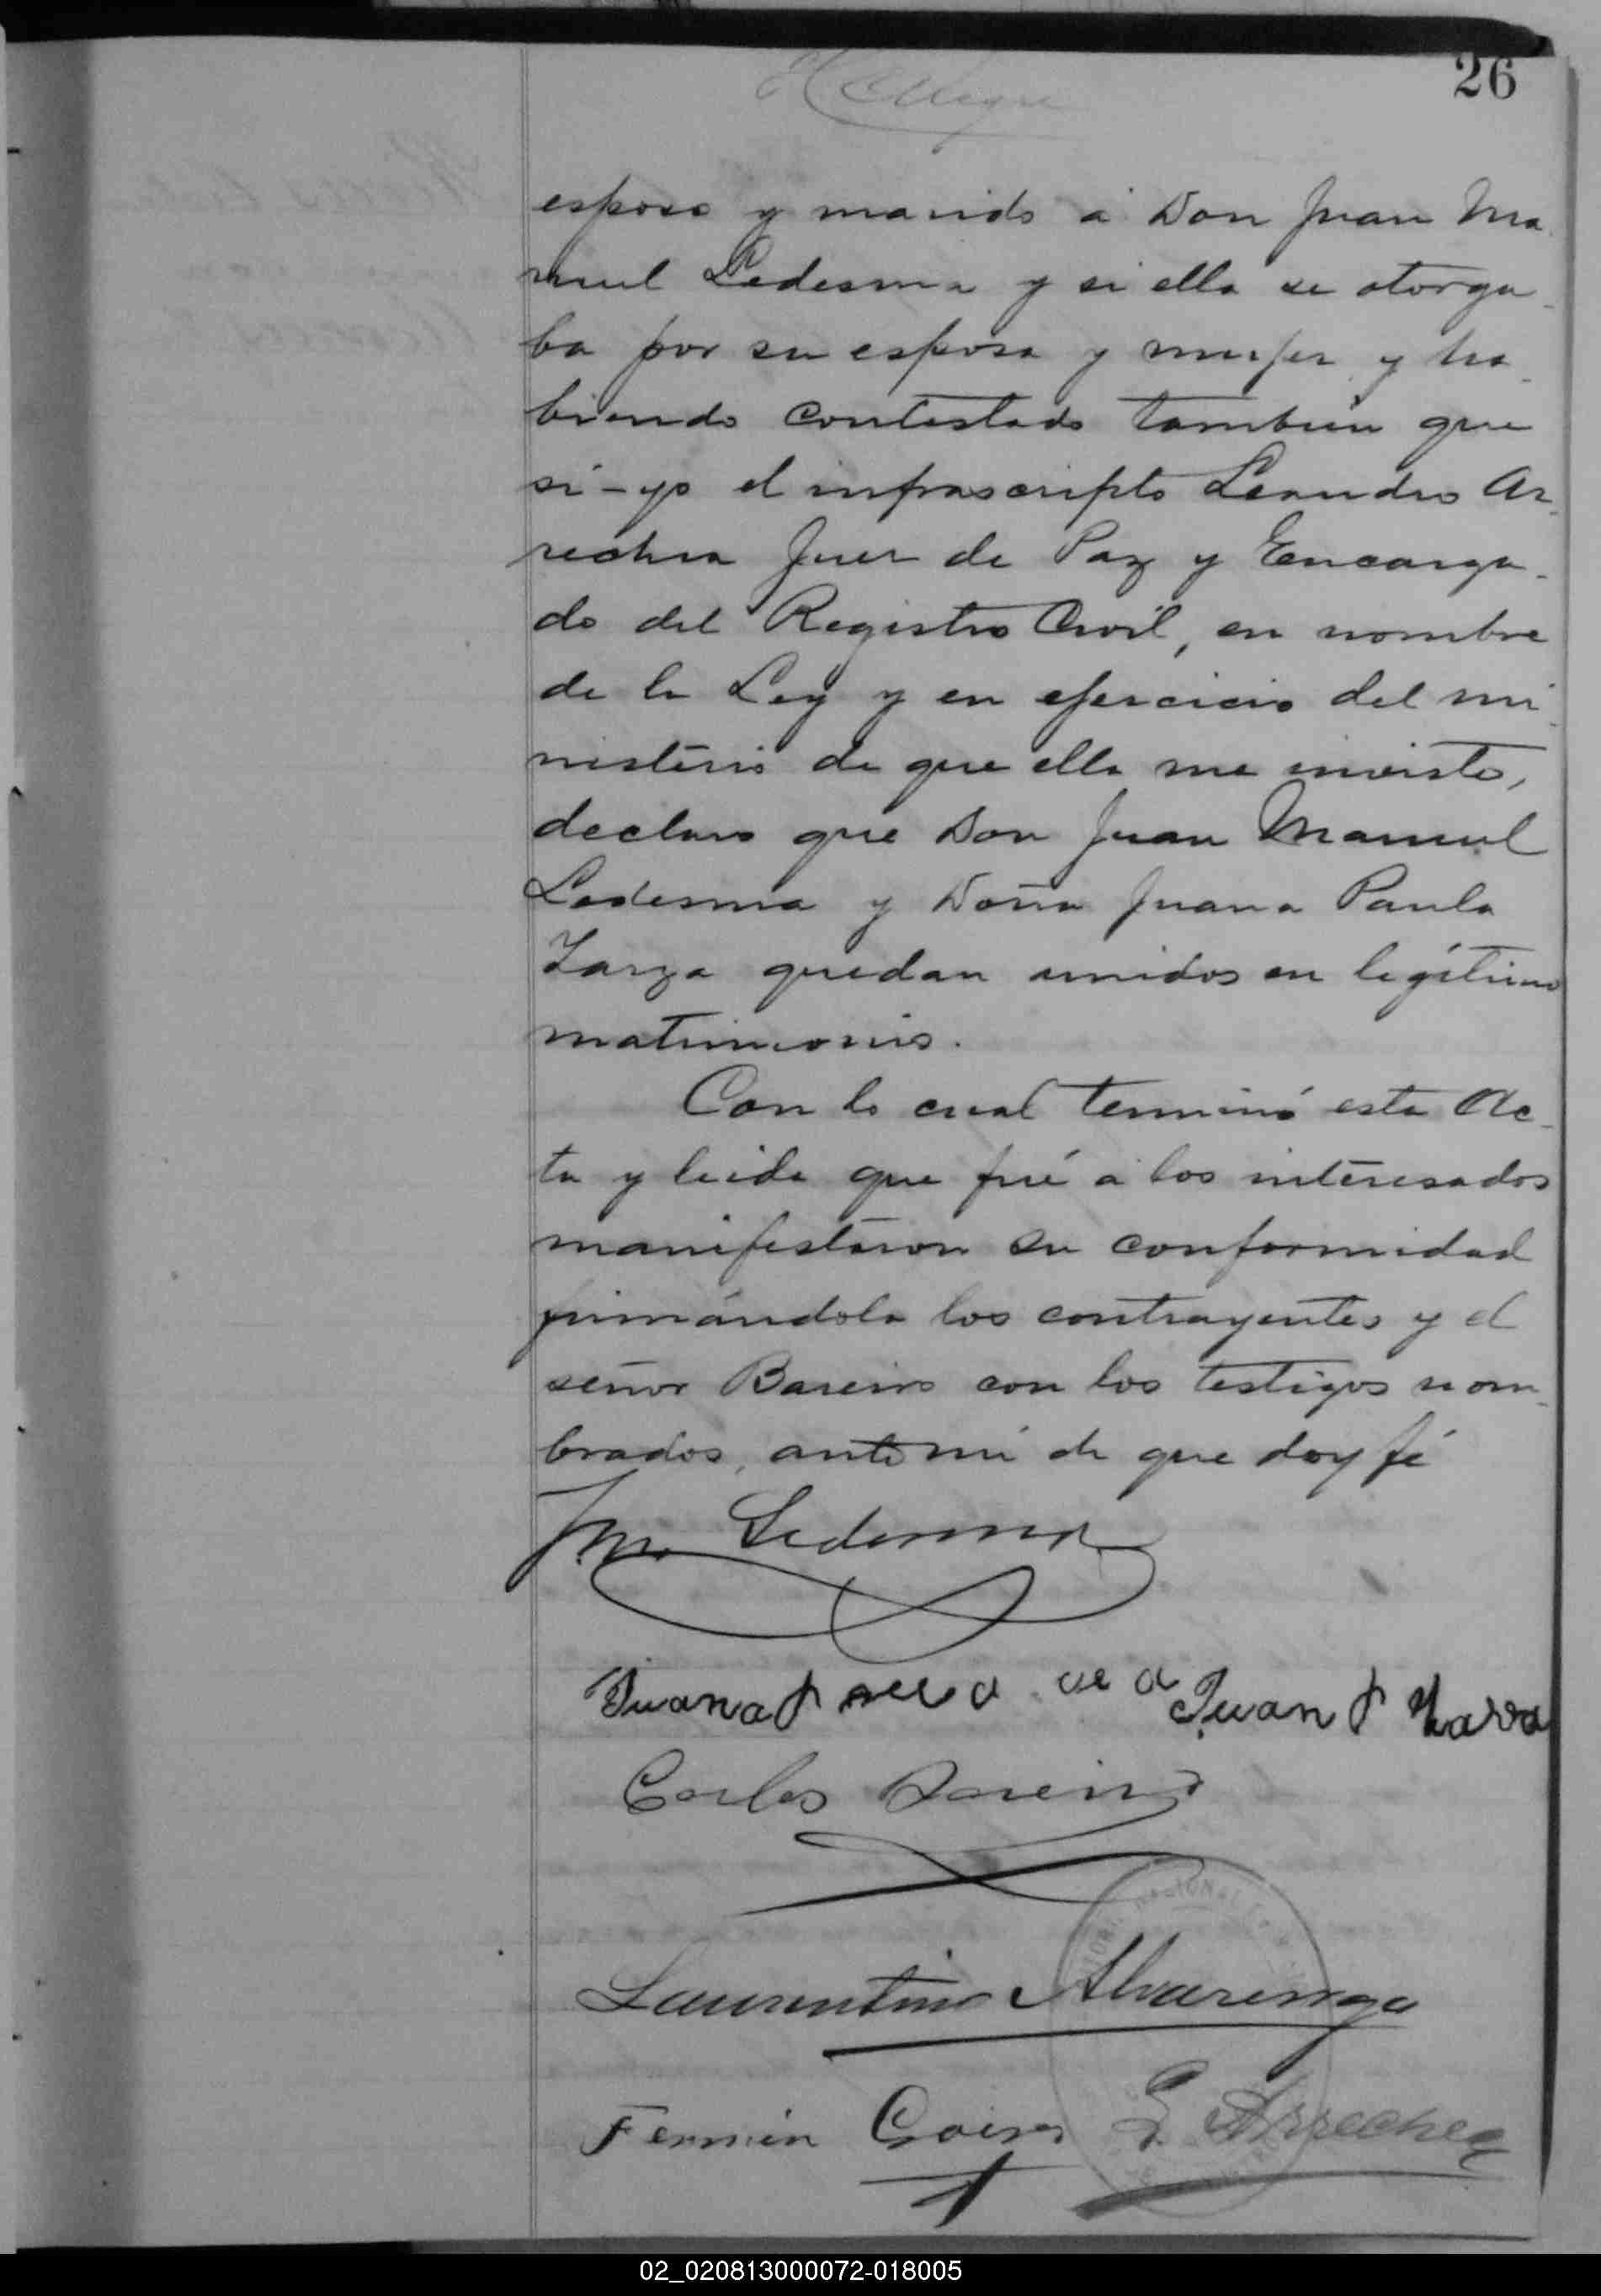 26
esposo y marido á Don Juan Ma
nuel Ledesma y si ella se otorga
ba por su esposa y mujer y ha
biendo contestado tambien que
si - yo el infrascripto Leandro Ar
rechea Juez de Paz y Encarga
do del Registro Civil, en nombre
de la Ley y en ejercicio del mi
nisterio de que ella me inviste,
declaro que Don Juan Manuel
Ledesma y Doña Juana Paula
Zarza quedan unidos en legítimo
matrimonio.
Con lo cual terminó esta Ac
ta y leida que fué á los interesados
manifestaron su conformidad
firmándola los contrayentes y el
señor Bareiro con los testigos nom
brados, ante mí de que doy fé
Jn. M. Ledesma
Juana P Juan P
Carlos Bareiro
Laurentino Alvarenga
Fermin L. Arrechea
02_020813000072-018005